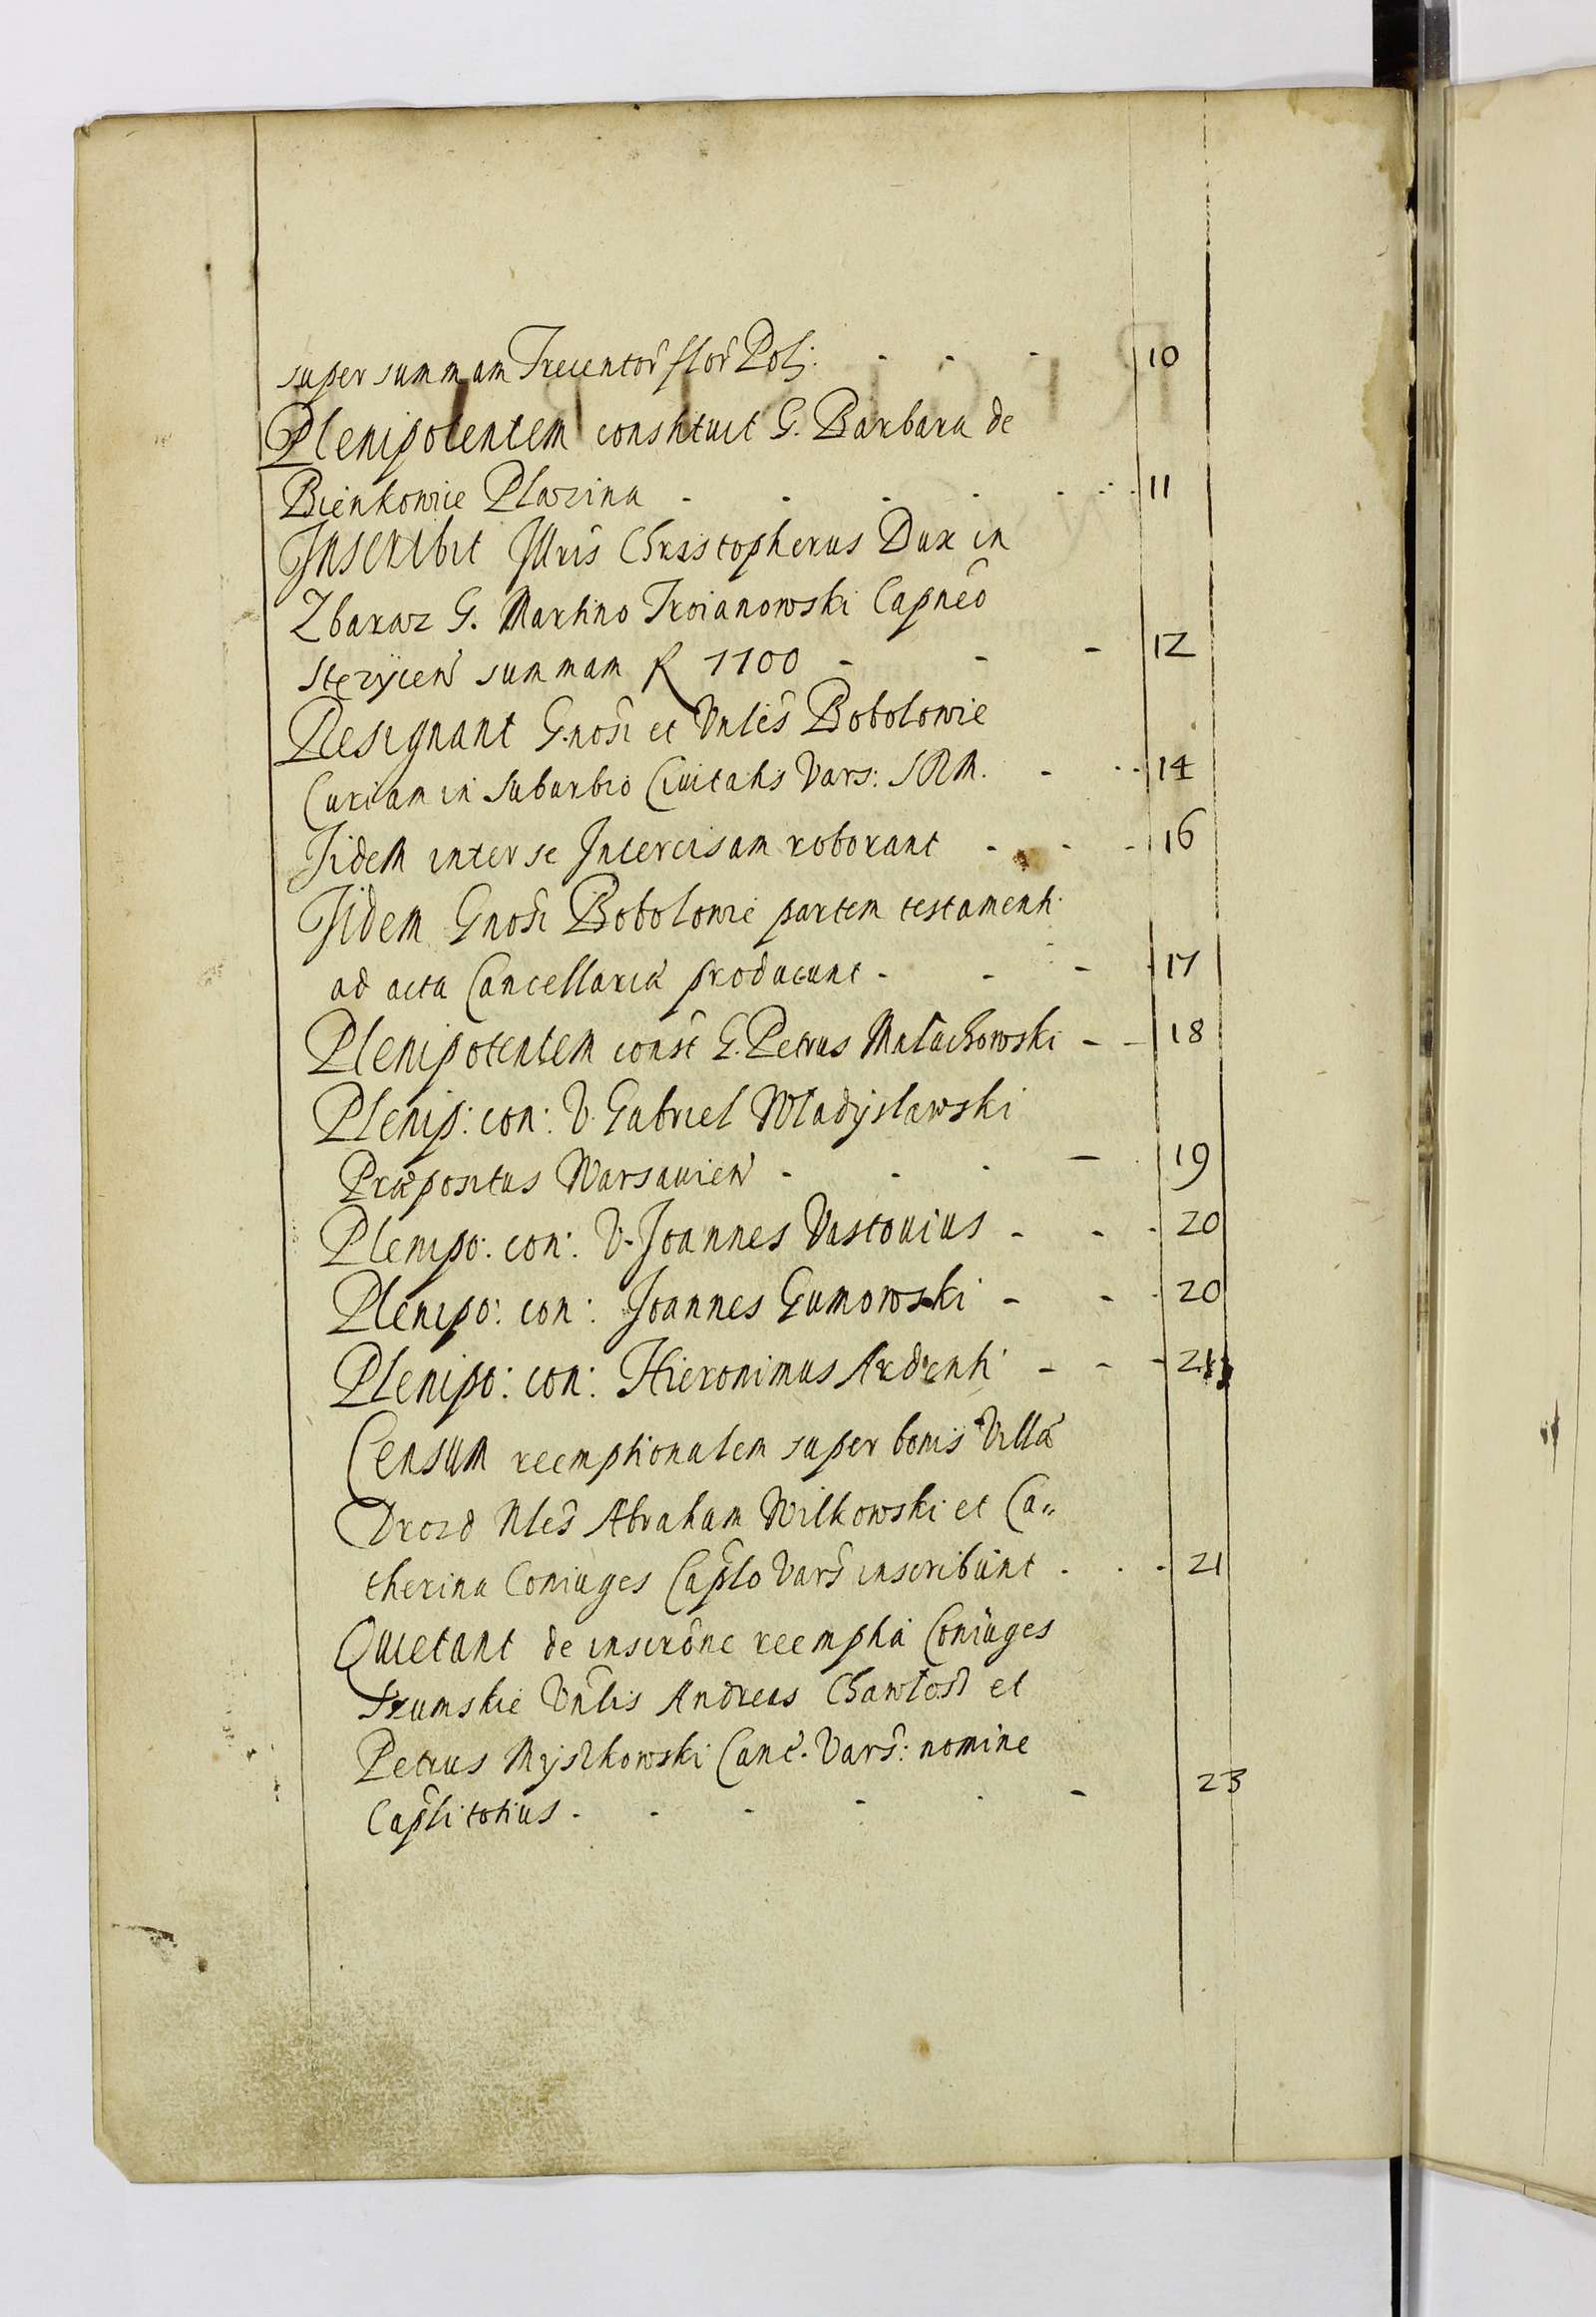 super summam Trecentor flor Pol: - - - 10
Plenipotentem constituit G. Barbara de
Bienkowice Plawina - - - - - - 11
Inscribit Illris Christopherus Dux in
Zbaraz G. Martino Troianowski Capneo
summam R 1100 - - - 12
Resignant Gnosi et Vnles Bobolowie
Curiam in suburbio Ciuitatis Vars: SRM. - - 14
Iidem inter se Intercisam roborant - - - 16
Iidem Gnosi Bobolowie partem testamenti
ad acta Cancellariæ producunt - - - - 17
Plenipotentem const G. Petrus Małachowski - - 18
Plenip: con: V. Gabriel Wladÿslawski
Præpositus Warsauien - - - - 19
Plenipo: con: V. Joannes Vastouius - - - 20
Plenipo: con: Joannes Gumowski - - - 20
Plenipo: con: Hieronimus Ardenti - - - 21
Censum reemptionalem super bonis Villæ
Drozd Nles Abraham Wilkowski et Ca=
therina Coniuges Caplo Vars inscribunt - - - 21
Quietant de inscrone reemptia Coniuges
Vnlis Andreas et
Petrus Mÿszkowski Canc. Vars: nomine
Capli totius - - - - - - 23